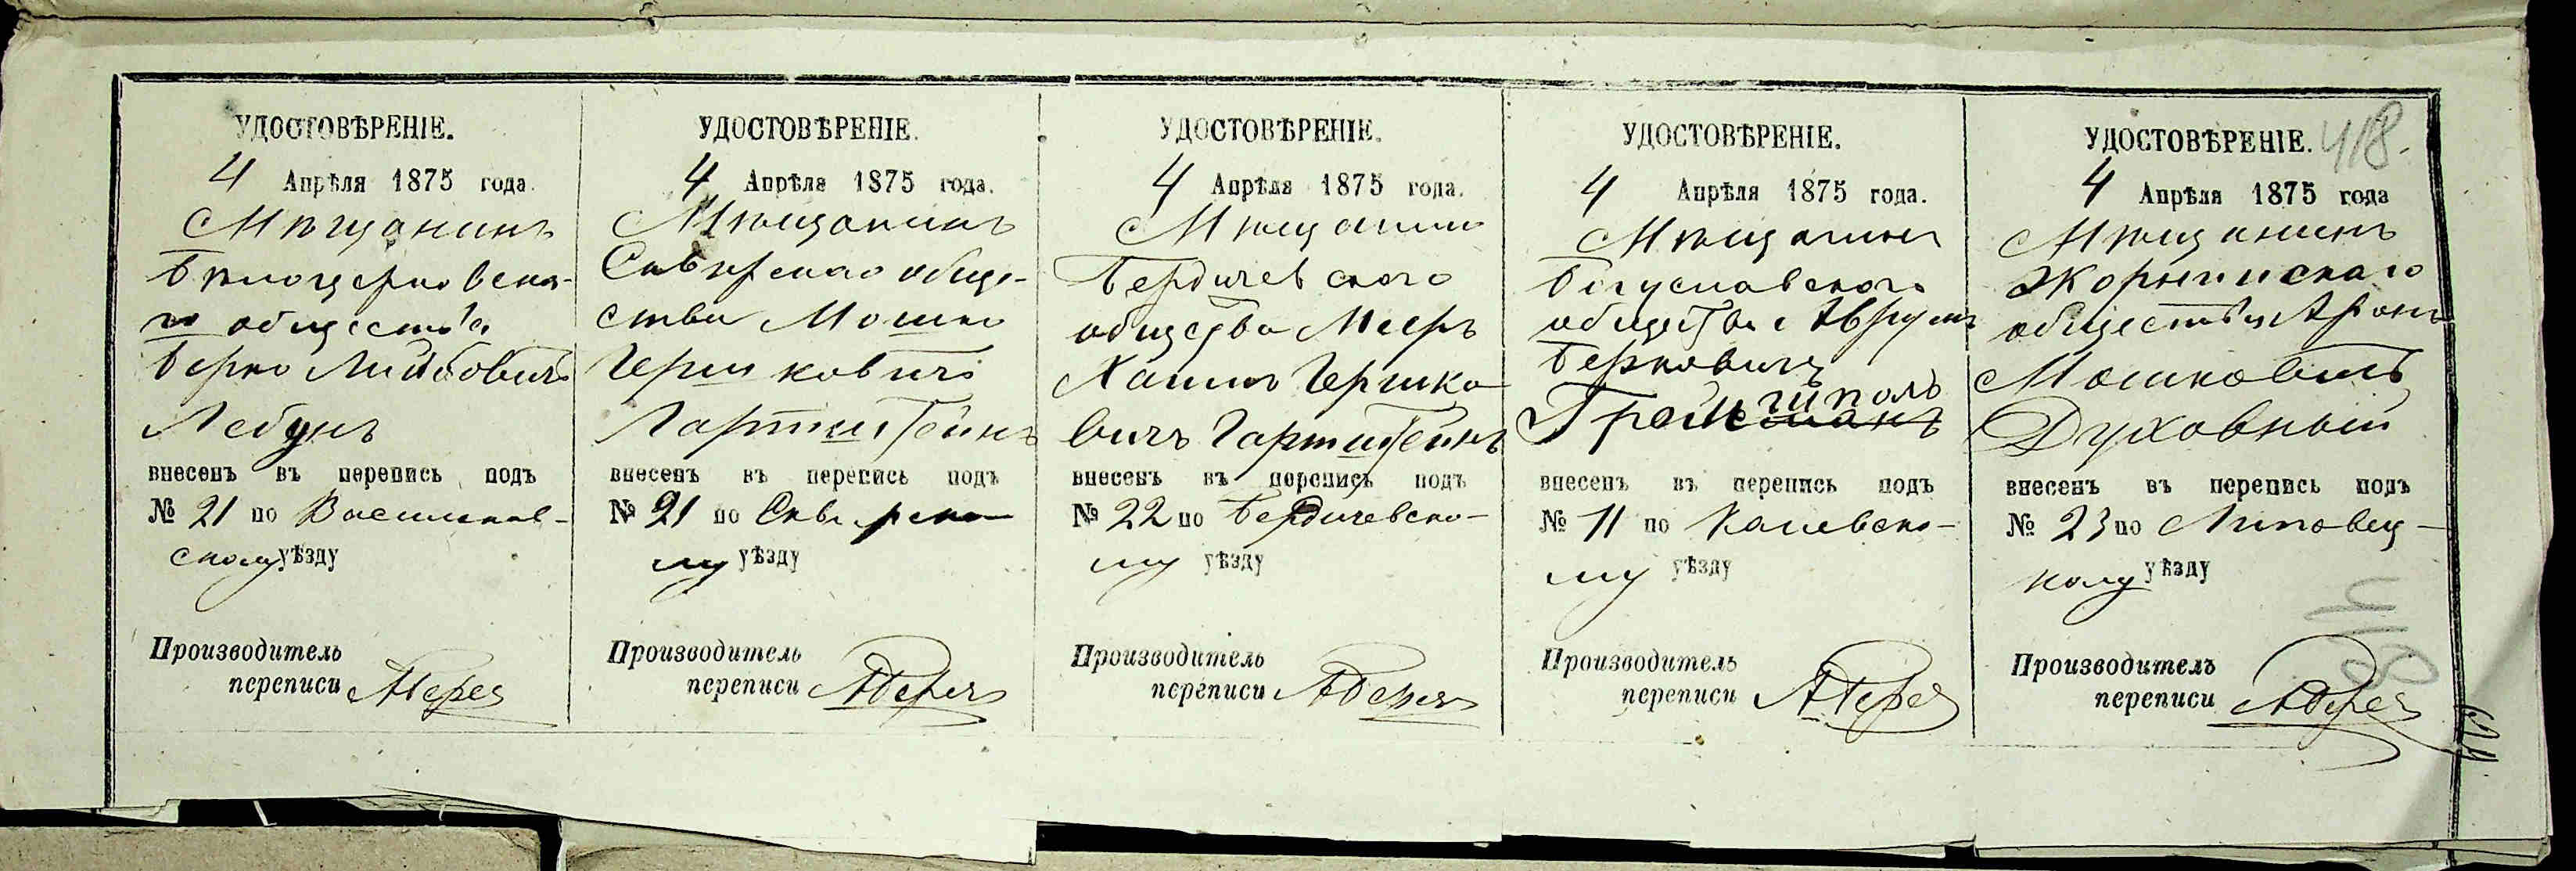 УДОСТОВѢРЕНІЕ.
4 Апрѣля 1875 года.
Мѣщанинъ
Бѣлоцерковска-
го общества
Берко Лейбовичъ
Лебунъ
внесенъ въ перепись подъ
№ 21 по Васильков-
скому уѣзду
Производитель
переписи
УДОСТОВѢРЕНІЕ.
4 Апрѣля 1875 года.
Мѣщанинъ
Сквирскаго обще-
ства Мошко
Гершковичъ
Гартштейнъ
внесенъ въ перепись подъ
№ 21 по Сквирско-
му уѣзду
Производитель
переписи
УДОСТОВѢРЕНІЕ.
4 Апрѣля 1875 года.
Мѣщанинъ
Бердичевского
общества Мееръ
Хаимъ Гершко-
вичъ Гартштейнъ
внесенъ въ перепись подъ
№ 22 по Бердичевско-
му уѣзду
Производитель
переписи
УДОСТОВѢРЕНІЕ.
4 Апрѣля 1875 года.
Мѣщанинъ
Богуславского
общества Аврумъ
Берковичъ
внесенъ въ перепись подъ
№ 11 по Каневско-
му уѣзду
Производитель
переписи
418.
УДОСТОВѢРЕНІЕ.
4 Апрѣля 1875 года
Мѣщанинъ
Жорнищскаго
общества Аронъ
Мошковичъ
Духовный
внесенъ въ перепись подъ
№ 23 по Липовец-
кому уѣзду
Производитель
переписи